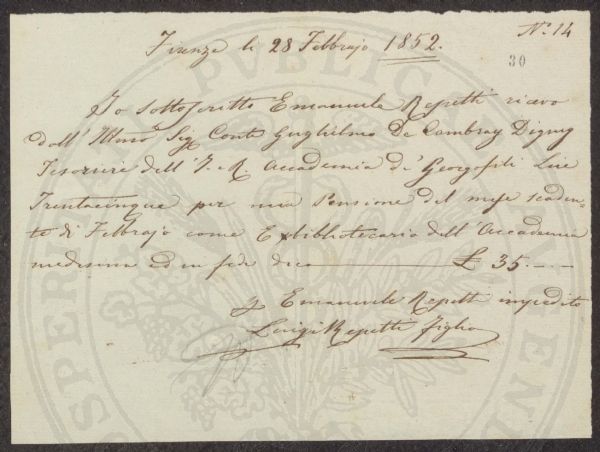 Nº 14
Firenze li 28 Febbrajo 1852.
30
Io sottoscritto Emanuele Repetti ricevo
dall' Illmo Sig Conte Guglielmo De Cambray Digny
Tesoriere dell' I. R. Accademia de' Georgofili Lire
Trentacinque per mia Pensione del mese scaden-
te di Febbrajo come Exbibliotecario dell' Accademia
medesima ed in fede dico £ 35. - -
p Emanuele Repetti impedito
Luigi Repetti figlio
PUBLICAE
PROSPERITATI